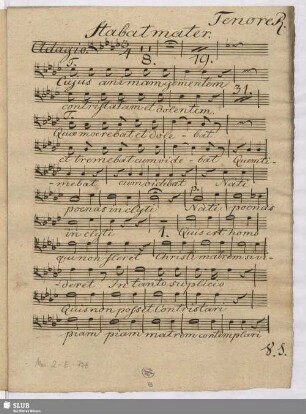 Tenore R.
Stabat mater.
Adagio. 3/4
8. 19.
T.
Cujus animam gementem
31.
contristatam et dolentem.
T.
Quæ moerebat et dole - bat
et tremebat cum vide - bat Quæ ti-
mebat, cum videbat Nati
p.
poenas inclyti Nati poenas
inclyti 1. Quis est homo
qui non fleret Christi matrem si vi-
deret In tanto supplicio
Quis non posset contristari
piam piam matrem contemplari
V. S.
SLUB